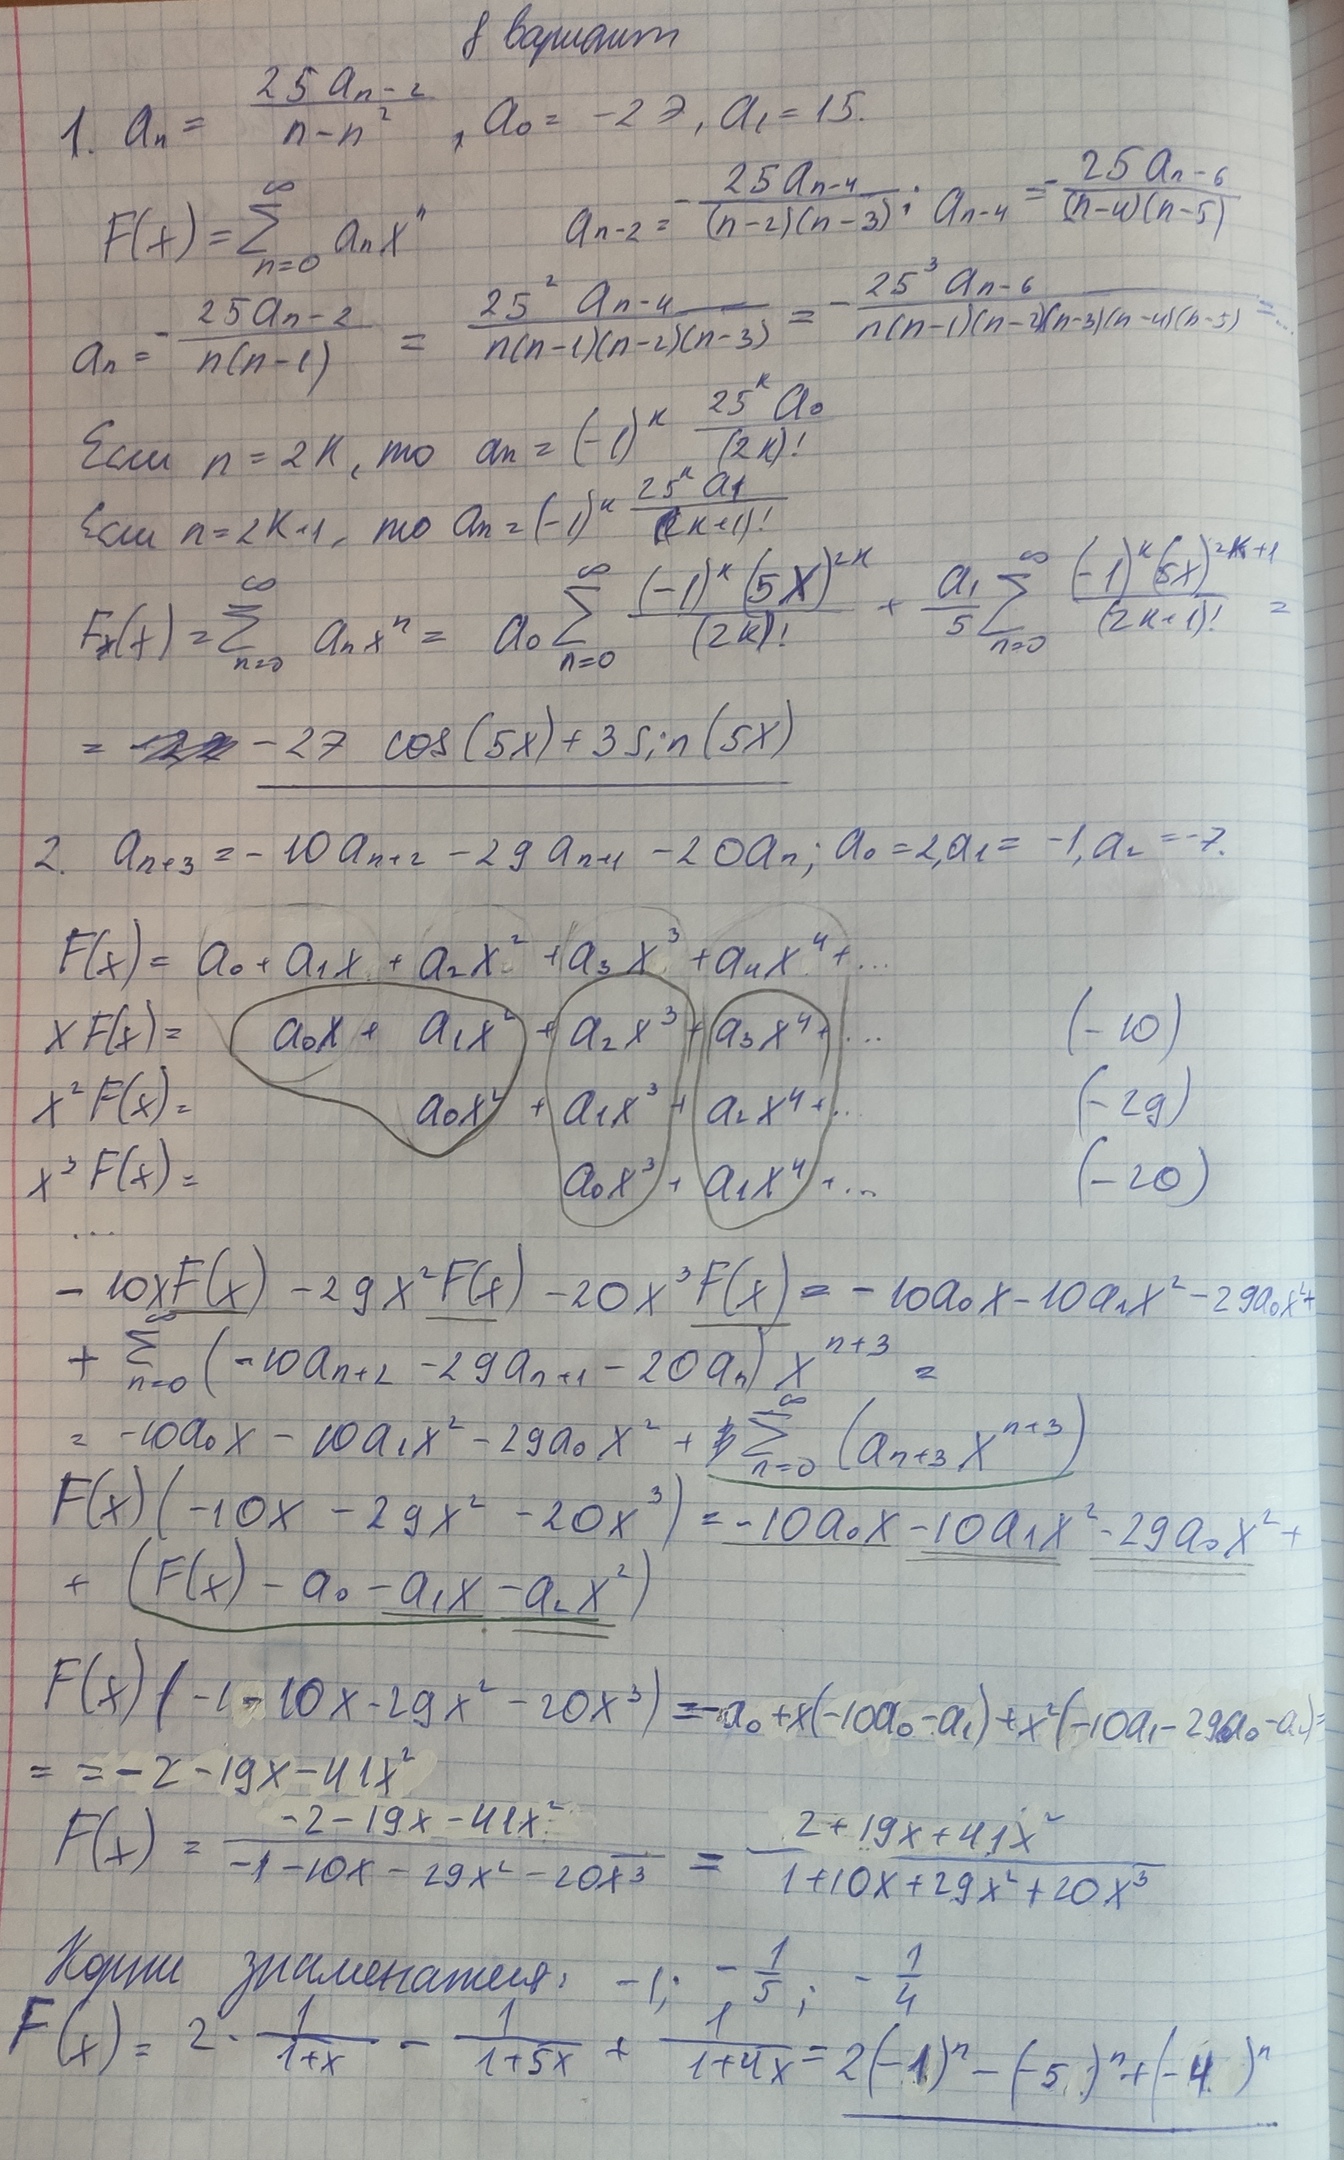 8 вариант
1. aₙ = 25aₙ₋₂/(n-n²), a₀ = -27, a₁ = 15.
F(x) = ∑_{n=0}^{∞} aₙxⁿ aₙ₋₂ = -25aₙ₋₄/((n-2)(n-3)); aₙ₋₄ = -25aₙ₋₆/((n-4)(n-5))
aₙ = -25aₙ₋₂/(n(n-1)) = 25²aₙ₋₄/(n(n-1)(n-2)(n-3)) = -25³aₙ₋₆/(n(n-1)(n-2)(n-3)(n-4)(n-5)) = ...
Если n = 2k, то aₙ = (-1)ᵏ 25ᵏa₀/(2k)!
Если n = 2k+1, то aₙ = (-1)ᵏ 25ᵏa₁/(2k+1)!
F(x) = ∑_{n=0}^{∞} aₙxⁿ = a₀ ∑_{n=0}^{∞} (-1)ᵏ(5x)²ᵏ/(2k)! + a₁/5 ∑_{n=0}^{∞} (-1)ᵏ(5x)²ᵏ⁺¹/(2k+1)! =
= -27 cos(5x) + 3 sin(5x)
2. aₙ₊₃ = -10aₙ₊₂ - 29aₙ₊₁ - 20aₙ; a₀ = 2, a₁ = -1, a₂ = -7.
F(x) = a₀ + a₁x + a₂x² + a₃x³ + a₄x⁴ + ...
xF(x) = a₀x + a₁x² + a₂x³ + a₃x⁴ + ... (-10)
x²F(x) = a₀x² + a₁x³ + a₂x⁴ + ... (-29)
x³F(x) = a₀x³ + a₁x⁴ + ... (-20)
...
-10xF(x) - 29x²F(x) - 20x³F(x) = -10a₀x - 10a₁x² - 29a₀x² +
+ ∑_{n=0}^{∞} (-10aₙ₊₂ - 29aₙ₊₁ - 20aₙ) xⁿ⁺³ =
= -10a₀x - 10a₁x² - 29a₀x² + ∑_{n=0}^{∞} (aₙ₊₃xⁿ⁺³)
F(x)(-10x - 29x² - 20x³) = -10a₀x - 10a₁x² - 29a₀x² +
+ (F(x) - a₀ - a₁x - a₂x²)
F(x)(-1 - 10x - 29x² - 20x³) = -a₀ + x(-10a₀ - a₁) + x²(-10a₁ - 29a₀ - a₂) =
= = -2 - 19x - 41x²
F(x) = (-2 - 19x - 41x²)/(-1 - 10x - 29x² - 20x³) = (2 + 19x + 41x²)/(1 + 10x + 29x² + 20x³)
Корни знаменателя: -1; -1/5; -1/4
F(x) = 2·1/(1+x) - 1/(1+5x) + 1/(1+4x) = 2(-1)ⁿ - (-5)ⁿ + (-4)ⁿ